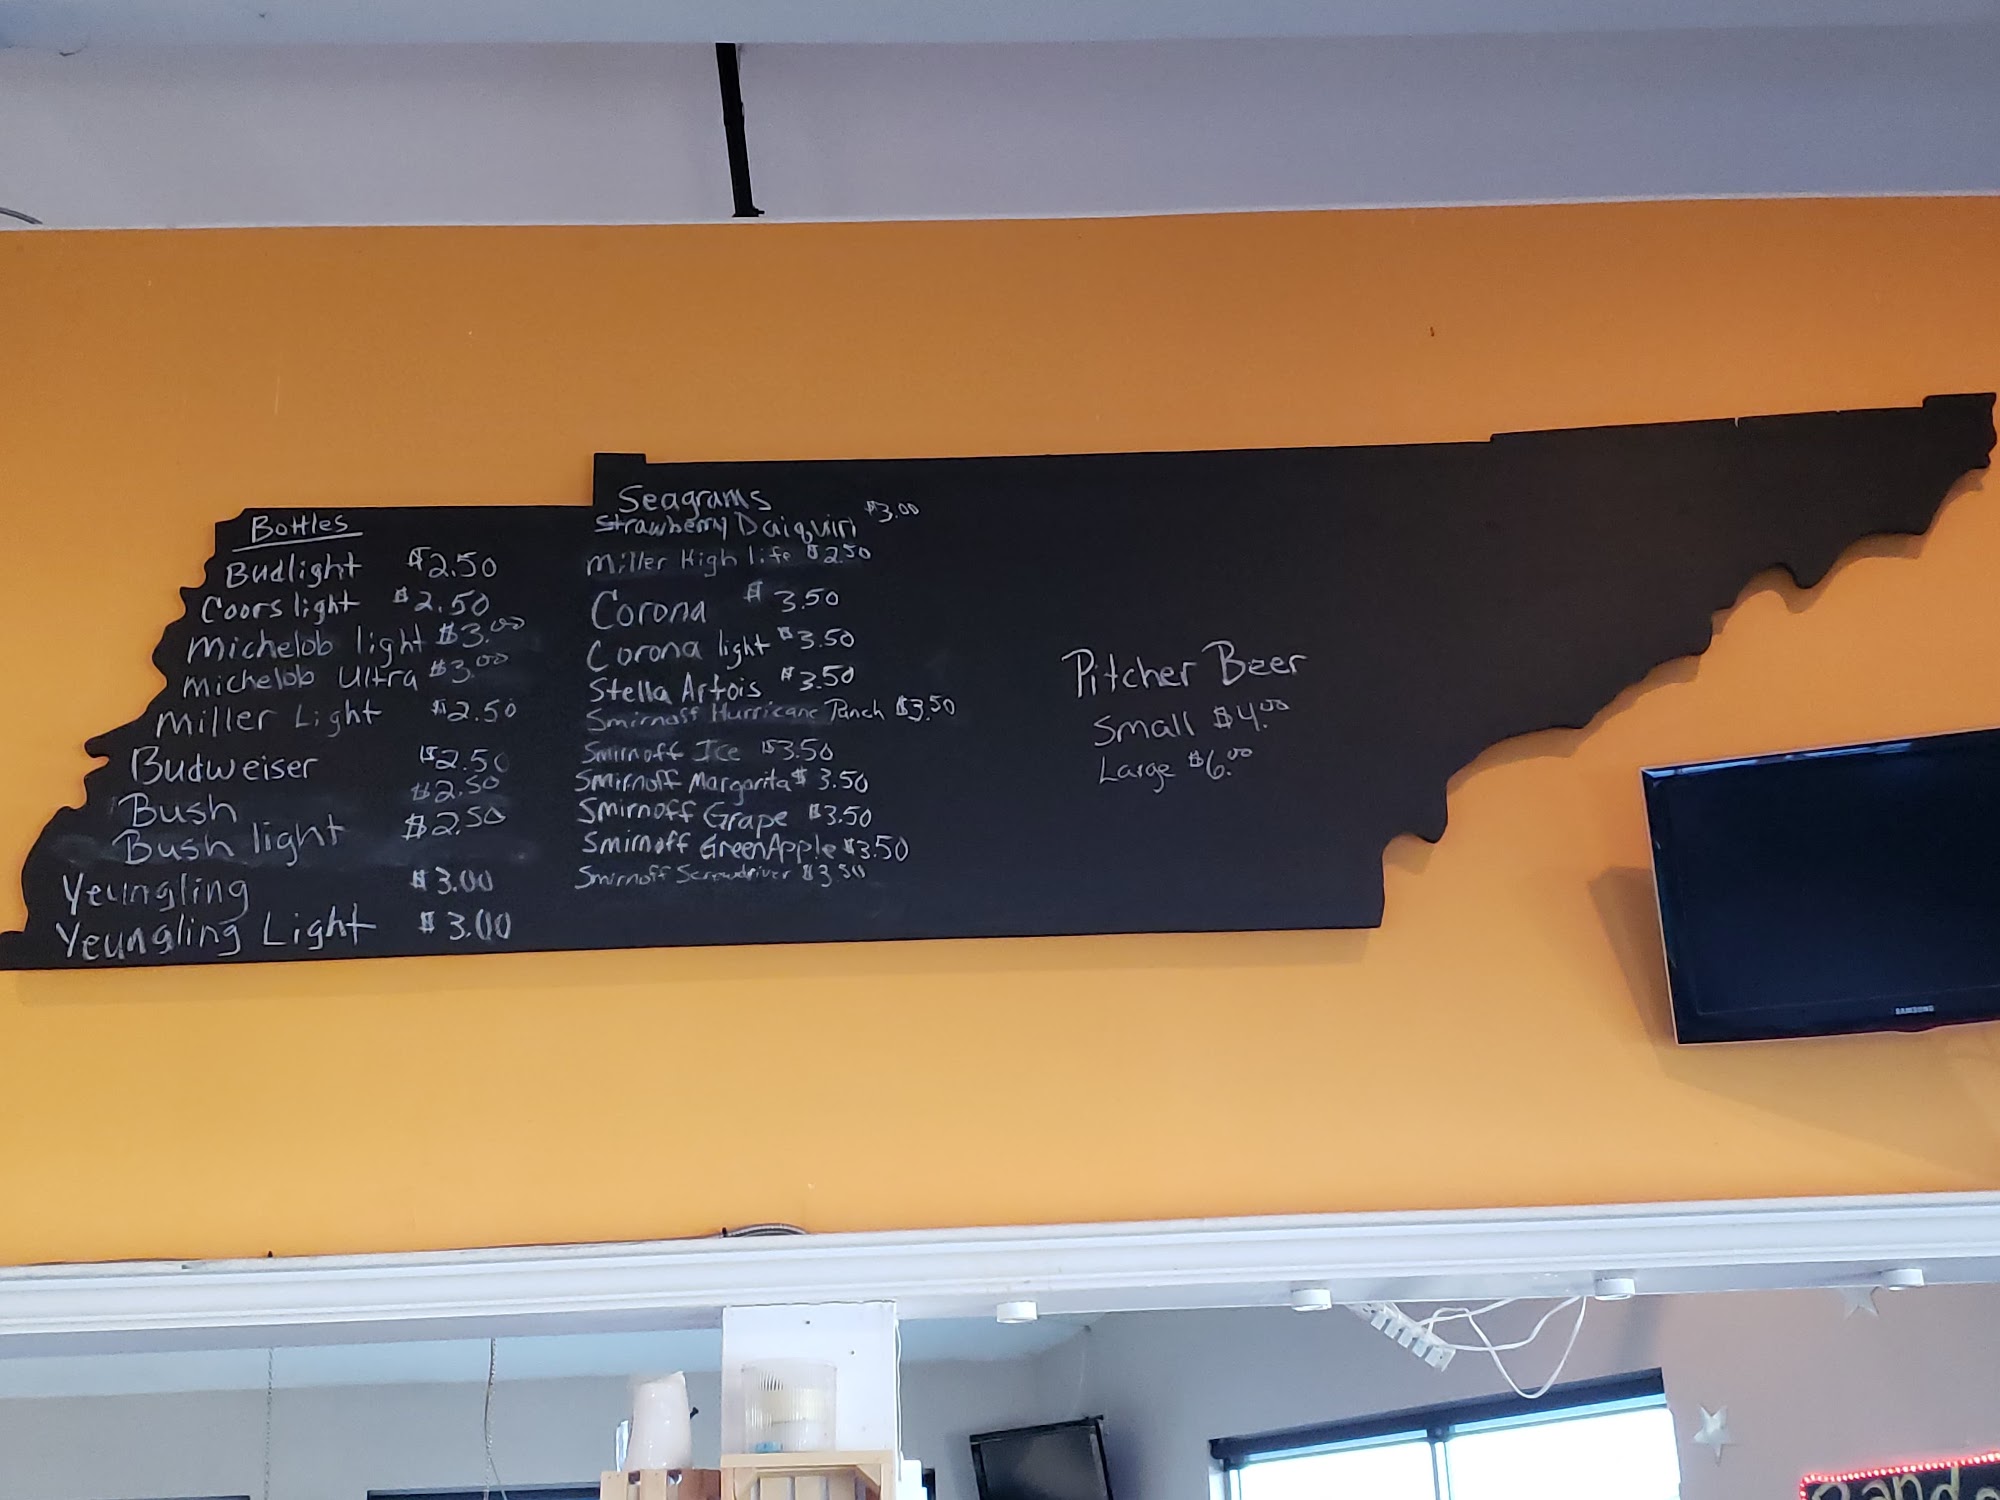 Bottles
Budlight $2.50
Coors light $2.50
Michelob light $3.00
Michelob Ultra $3.00
Miller Light $2.50
Budweiser $2.50
Bush $2.50
Bush light $2.50
Yeungling $3.00
Yeungling Light $3.00
Seagrams
Strawberry Daiquiri $3.00
Miller High life $2.50
Corona $3.50
Corona light $3.50
Stella Artois $3.50
Smirnoff Hurricane Punch $3.50
Smirnoff Ice $3.50
Smirnoff Margarita $3.50
Smirnoff Grape $3.50
Smirnoff GreenApple $3.50
Smirnoff Screwdriver $3.50
Pitcher Beer
Small $4.00
Large $6.00
SAMSUNG